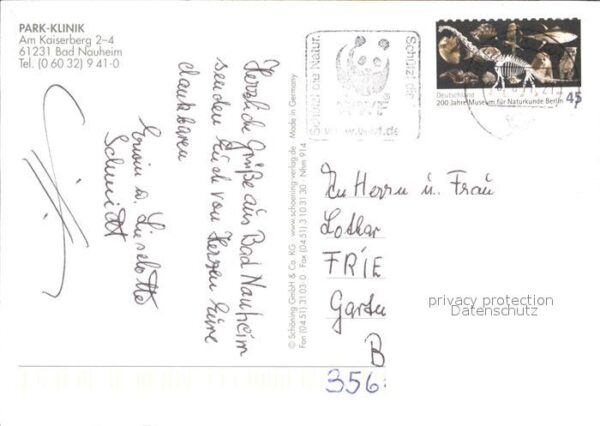 PARK-KLINIK
Am Kaiserberg 2–4
61231 Bad Nauheim
Tel. (0 60 32) 9 41-0
Herzliche Grüße aus Bad Nauheim
senden Euch von Herzen Eure
dankbaren
Erwin u. Lieselotte
Schmidt
© Schöning GmbH & Co. KG · www.schoening-verlag.de · Made in Germany
Fon (04 51) 3 10 3-0 · Fax (04 51) 3 10 31 30 · Nhm 914
Schützt die Natur,
Schützt die
WWF
www.wwf.de
Deutschland
200 Jahre Museum für Naturkunde Berlin
45
An Herrn u. Frau
Lothar
FRIE
Garten
B
356
privacy protection
Datenschutz